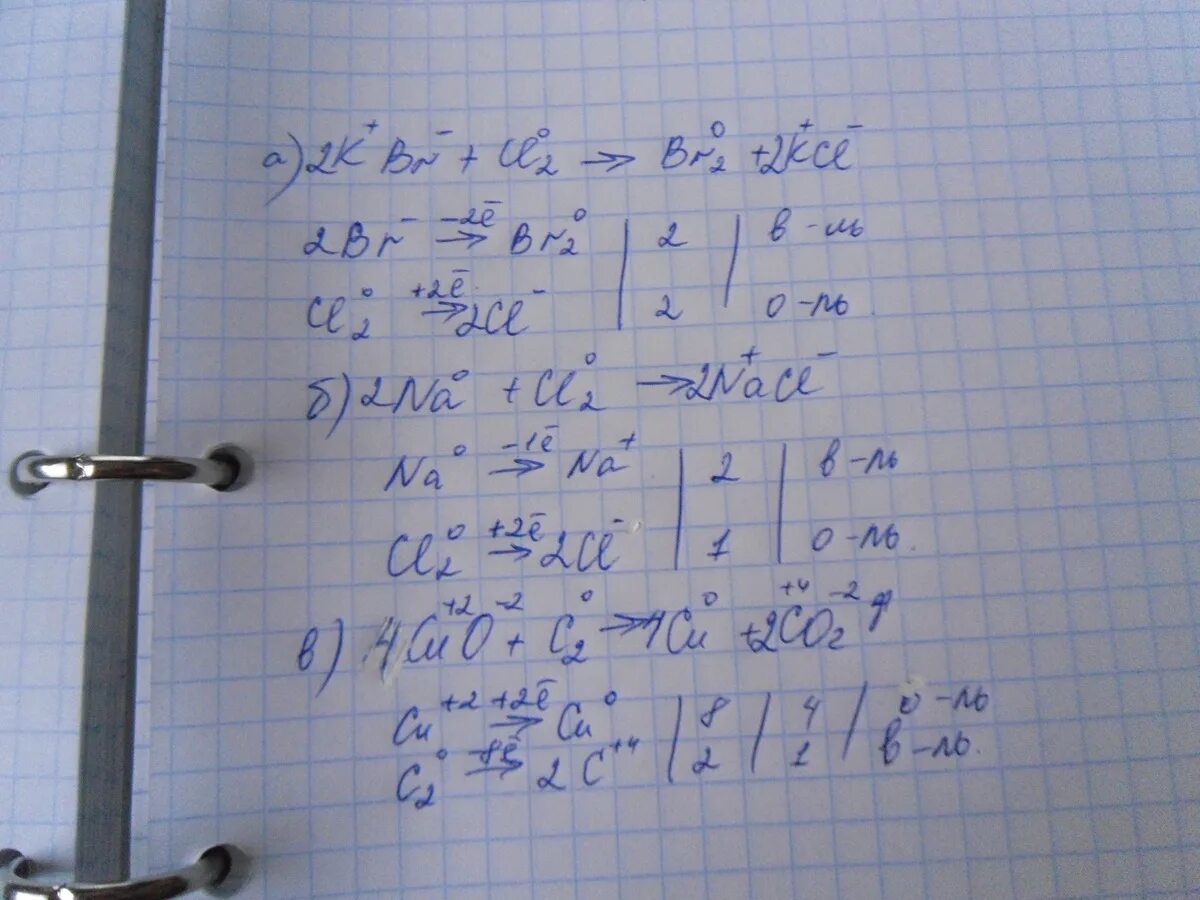 а) 2K⁺Br⁻ + Cl₂⁰ → Br₂⁰ + 2K⁺Cl⁻
2Br⁻ –2ē → Br₂⁰ | 2 | в-ль
Cl₂⁰ +2ē → 2Cl⁻ | 2 | о-ль
б) 2Na⁰ + Cl₂⁰ → 2Na⁺Cl⁻
Na⁰ –1ē → Na⁺ | 2 | в-ль
Cl₂⁰ +2ē → 2Cl⁻ | 1 | о-ль.
в) 4Cu⁺²O⁻² + C₂⁰ → 4Cu⁰ + 2C⁺⁴O₂⁻² ↑
Cu⁺² +2ē → Cu⁰ | 8 | 4 | о-ль
C₂⁰ –8ē → 2C⁺⁴ | 2 | 1 | в-ль.